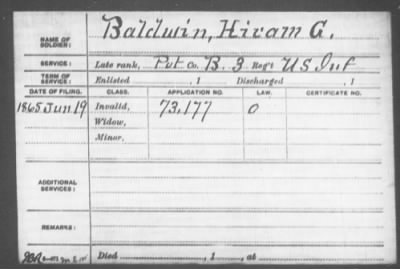 NAME OF SOLDIER: Baldwin, Hiram G.
SERVICE: Late rank, Pvt Co. B. 3 Reg't US Inf
TERM OF SERVICE: Enlisted , 1 Discharged , 1
DATE OF FILING. CLASS. APPLICATION NO. LAW. CERTIFICATE NO.
1865 Jun 19 Invalid, 73,177 O
Widow,
Minor,
ADDITIONAL SERVICES:
REMARKS:
Died , 1 , at